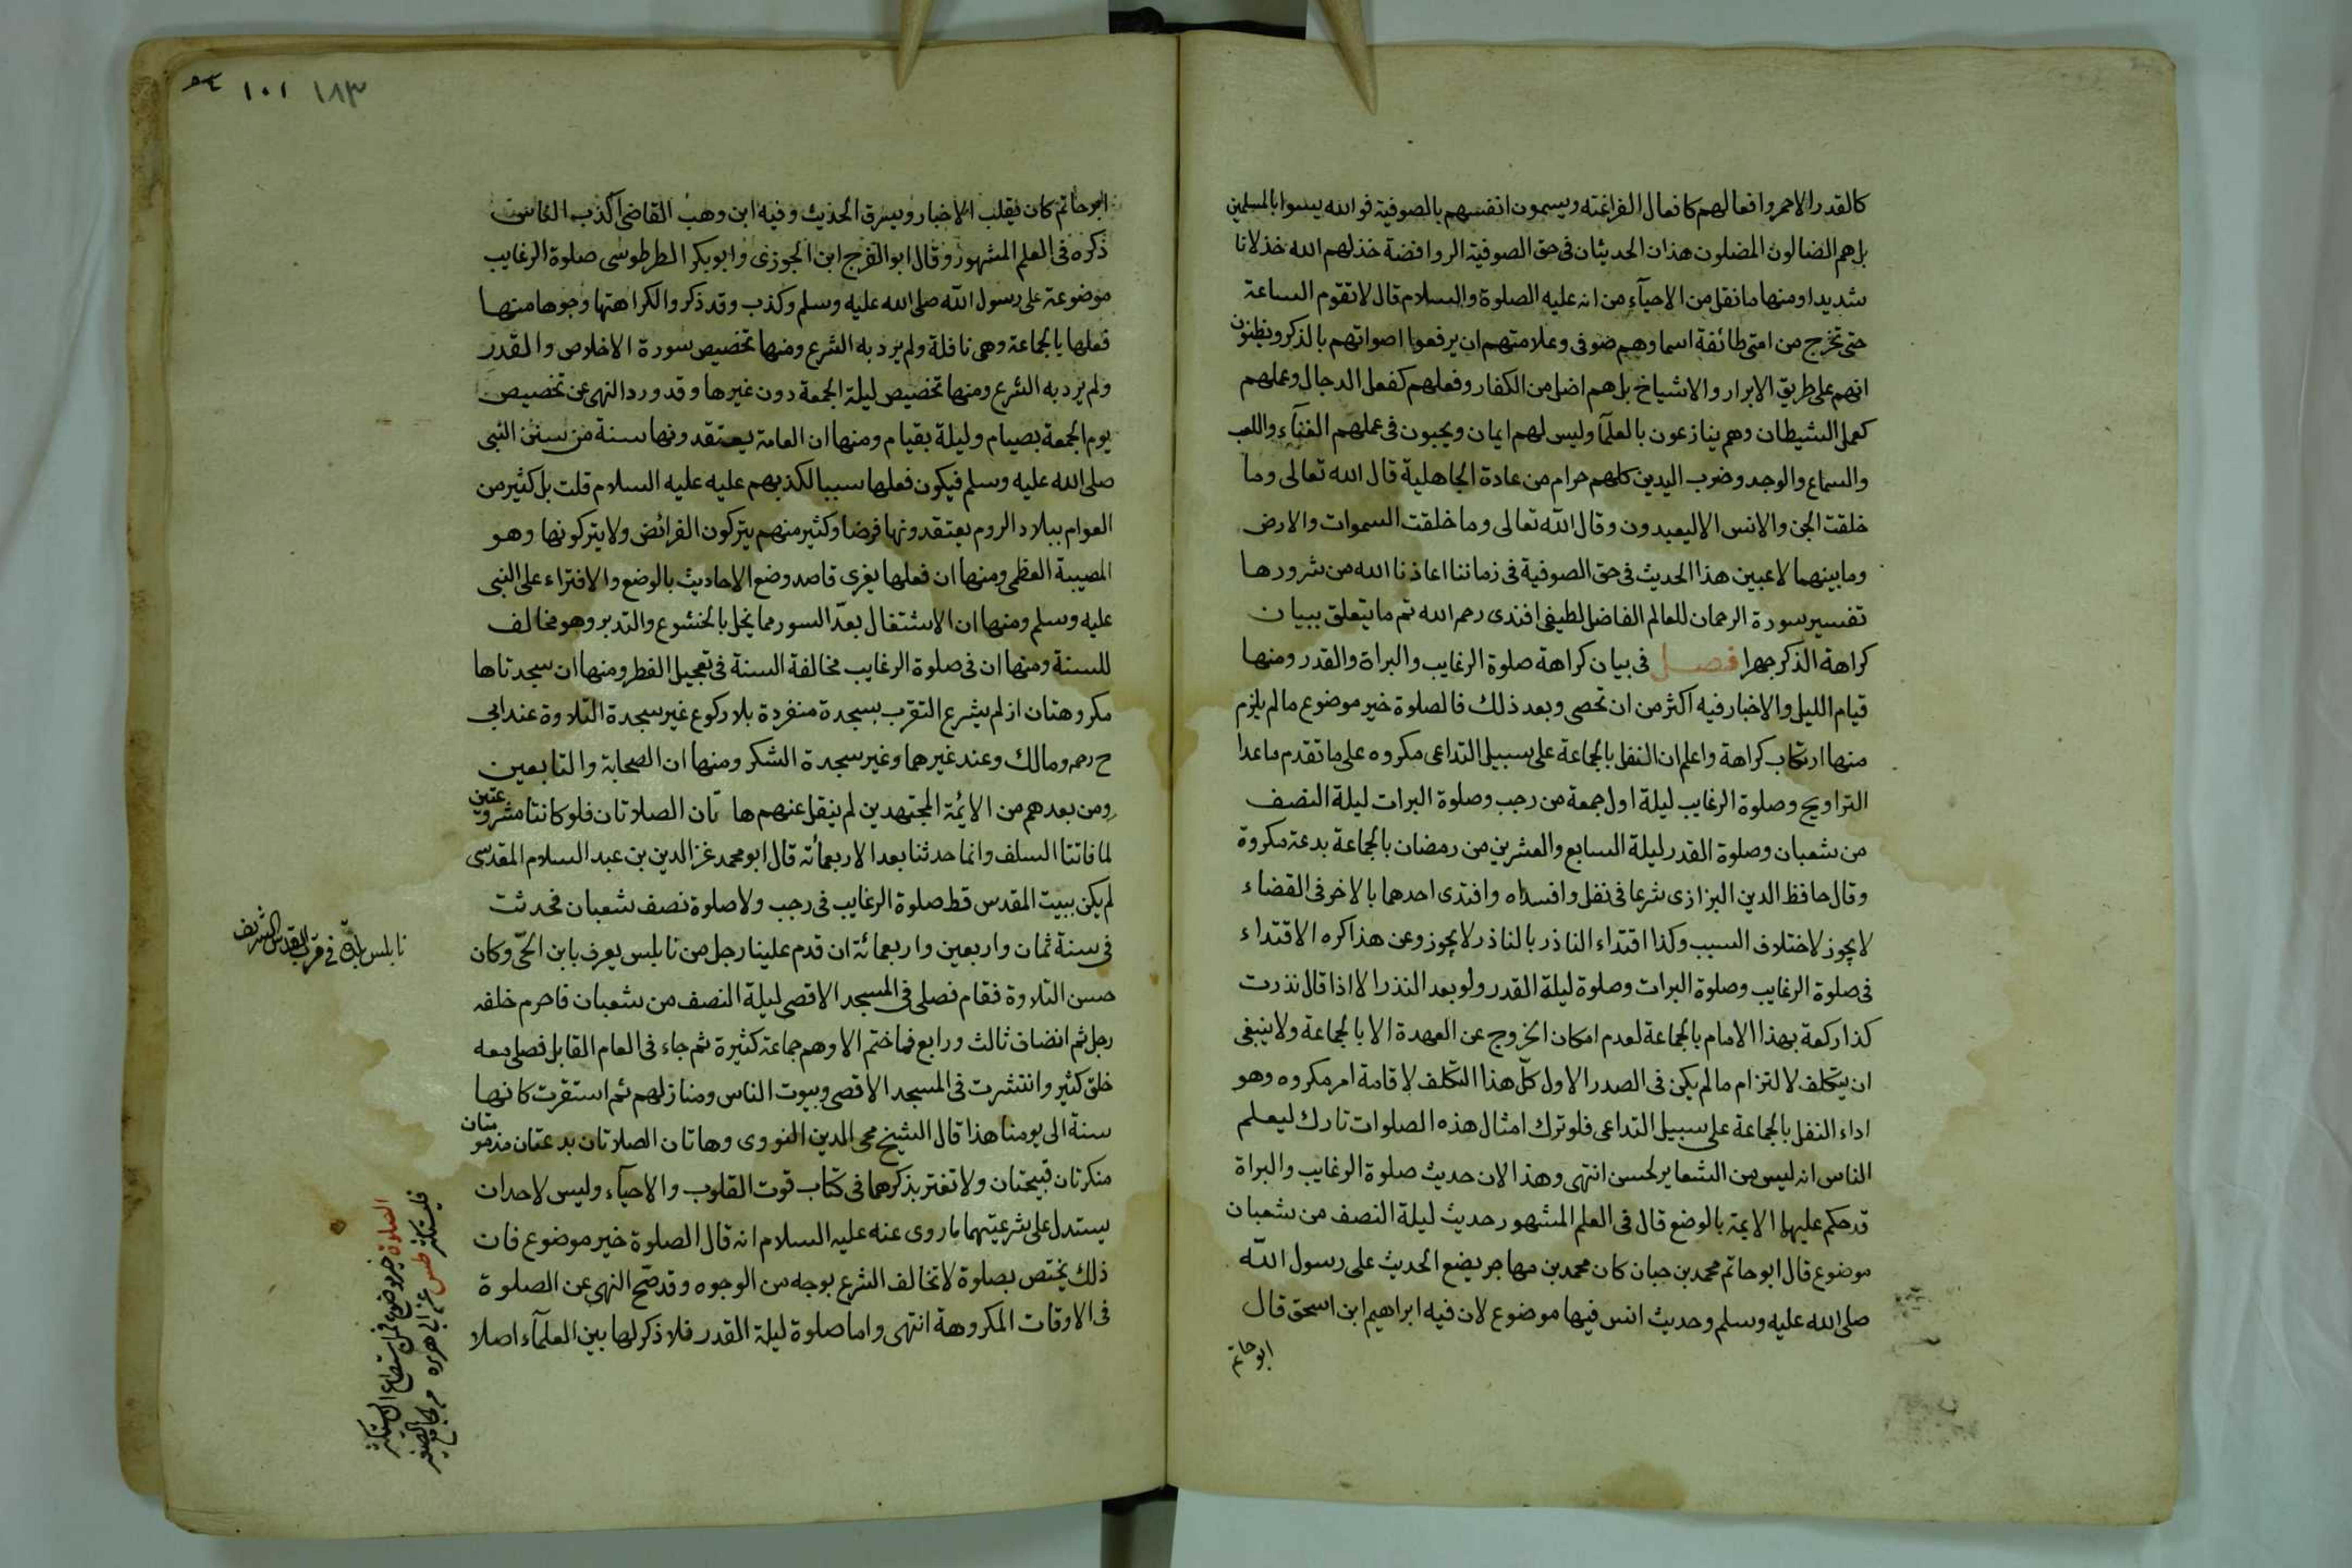 كالقدر الاحمر وافعالهم كافعال الفراغنه ويسمون انفسهم بالصوفية فوالله ليسوا بالمسلمين
بل هم الضالون المضلون هذان الحديثان فى حق الصوفية الروافضة خذلهم الله خذلانا
شديدا ومنها ما نقل من الاحيآء من انه عليه الصلوة والسلام قال لا تقوم الساعة
حتى تخرج من امتى طائفة اسماوهم صوفى وعلامتهم ان يرفعوا اصواتهم بالذكر ويظنون
انهم على طريق الابرار والاشياخ بل هم اضل من الكفار وفعلهم كفعل الدجال وعملهم
كعمل الشيطان وهم ينازعون بالعلمآ وليس لهم ايمان ويحبون فى عملهم الغنآء واللعب
والسماع والوجد وضرب اليدين كلهم حرام من عادة الجاهلية قال الله تعالى وما
خلقت الجن والانس الا ليعبدون وقال الله تعالى وما خلقت السموات والارض
وما بينهما لاعبين هذا الحديث فى حق الصوفية فى زماننا اعاذنا الله من شرورها
تفسير سورة الرحمان للعالم الفاضل لطيفى افندى رحم الله تم ما يتعلق ببيان
كراهة الذكر جهرا فصل فى بيان كراهة صلوة الرغايب والبراة والقدر ومنها
قيام الليل والاخبار فيه اكثر من ان تحصى وبعد ذلك فالصلوة خير موضوع ما لم يلزم
منها ارتكاب كراهة واعلم ان النفل بالجماعة على سبيل التداعى مكروه على ما تقدم ما عدا
التراويح وصلوة الرغايب ليلة اول جمعة من رجب وصلوة البرات ليلة النصف
من شعبان وصلوة القدر ليلة السابع والعشرين من رمضان بالجماعة بدعة مكروة
وقال حافظ الدين البزازى شرعا فى نفل وافسداه واقتدى احدهما بالاخر فى القضاء
لا يجوز لاختلاف السبب وكذا اقتداء الناذر بالناذر لا يجوز وعن هذا كره الاقتداء
فى صلوة الرغايب وصلوة البرات وصلوة ليلة القدر ولو بعد النذر الا اذا قال نذرت
كذا ركعة بهذا الامام بالجماعة لعدم امكان الخروج عن العهدة الا بالجماعة ولا ينبغى
ان يتكلف لالتزام ما لم يكن فى الصدر الاول كلّ هذا التكلف لاقامة امر مكروه وهو
اداء النفل بالجماعة على سبيل التداعى فلو ترك امثال هذه الصلوات تارك ليعلم
الناس انه ليس من الشعاير لحسن انتهى وهذا الان حديث صلوة الرغايب والبراة
قد حكم عليها الايمة بالوضع قال فى العلم المشهور حديث ليلة النصف من شعبان
موضوع قال ابو حاتم محمد بن حبان كان محمد بن مهاجر يضع الحديث على رسول الله
صلى الله عليه وسلم وحديث انس فيها موضوع لان فيه ابراهيم ابن اسحق قال
ابو حاتم
١٨٣ ١٠١
ابو حاتم كان يقلب الاخبار ويسرق الحديث وفيه ابن وهب القاضى اكذب الناس
ذكره فى العلم المشهور وقال ابو الفرج ابن الجوزى وابو بكر الطرطوشى صلوة الرغايب
موضوعة على رسول الله صلى الله عليه وسلم وكذب وقد ذكروا لكراهتها وجوها منها
فعلها بالجماعة وهى نافلة ولم يرد به الشرع ومنها تخصيص سورة الاخلاص والقدر
ولم يرد به الشرع ومنها تخصيص ليلة الجمعة دون غيرها وقد ورد النهى عن تخصيص
يوم الجمعة بصيام وليلة بقيام ومنها ان العامة يعتقدونها سنة من سنن النبى
صلى الله عليه وسلم فيكون فعلها سببا لكذبهم عليه عليه السلام قلت بل كثير من
العوام ببلاد الروم يعتقدونها فرضا وكثير منهم يتركون الفرائض ولا يتركونها وهو
المصيبة العظمى ومنها ان فعلها يغرى قاصد وضع الاحاديث بالوضع والافتراء على النبى
عليه وسلم ومنها ان الاشتغال بعدّ السور مما يخل بالخشوع والتدبر وهو مخالف
للسنة ومنها ان فى صلوة الرغايب مخالفة السنة فى تعجيل الفطر ومنها ان سجدتاها
مكروهتان اذ لم يشرع التقرب بسجدة منفردة بلا ركوع غير سجدة التلاوة عند ابى
ح رحم ومالك وعند غيرهما وغير سجدة الشكر ومنها ان الصحابة والتابعين
ومن بعدهم من الايئمة المجتهدين لم ينقل عنهم ها تان الصلاتان فلو كانتا مشروعتين
لما فاتتا السلف وانما حدثتا بعد الاربعمائه قال ابو محمد عز الدين بن عبد السلام المقدسى
لم يكن ببيت المقدس قط صلوة الرغايب فى رجب ولا صلوة نصف شعبان فحدثت
فى سنة ثمان واربعين واربعمائة ان قدم علينا رجل من نابلس يعرف بابن الحىّ وكان
حسن التلاوة فقام فصلى فى المسجد الاقصى ليلة النصف من شعبان فاحرم خلفه
رجل ثم انضاف ثالث ورابع فما ختم الا وهم جماعة كثيرة ثم جاء فى العام القابل فصلى معه
خلق كثير وانتشرت فى المسجد الاقصى وبيوت الناس ومنازلهم ثم استقرت كانها
سنة الى يومنا هذا قال الشيخ محى الدين النووى وهاتان الصلاتان بدعتان مذمومتان
منكرتان قبيحتان ولا تغتر بذكرهما فى كتاب قوت القلوب والاحيآء وليس لاحد ان
يستدل على شرعيتهما بما روى عنه عليه السلام انه قال الصلوة خير موضوع فان
ذلك يختص بصلوة لا تخالف الشرع بوجه من الوجوه وقد صحّ النهى عن الصلوة
فى الاوقات المكروهة انتهى واما صلوة ليلة القدر فلا ذكر لها بين العلمآء اصلا
نابلس بلدة فى قرب القدس الشريف
الصلوة خير موضوع فمن استطاع ان يستكثر
فليستكثر طس عن ابى هريره من جامع الصغير